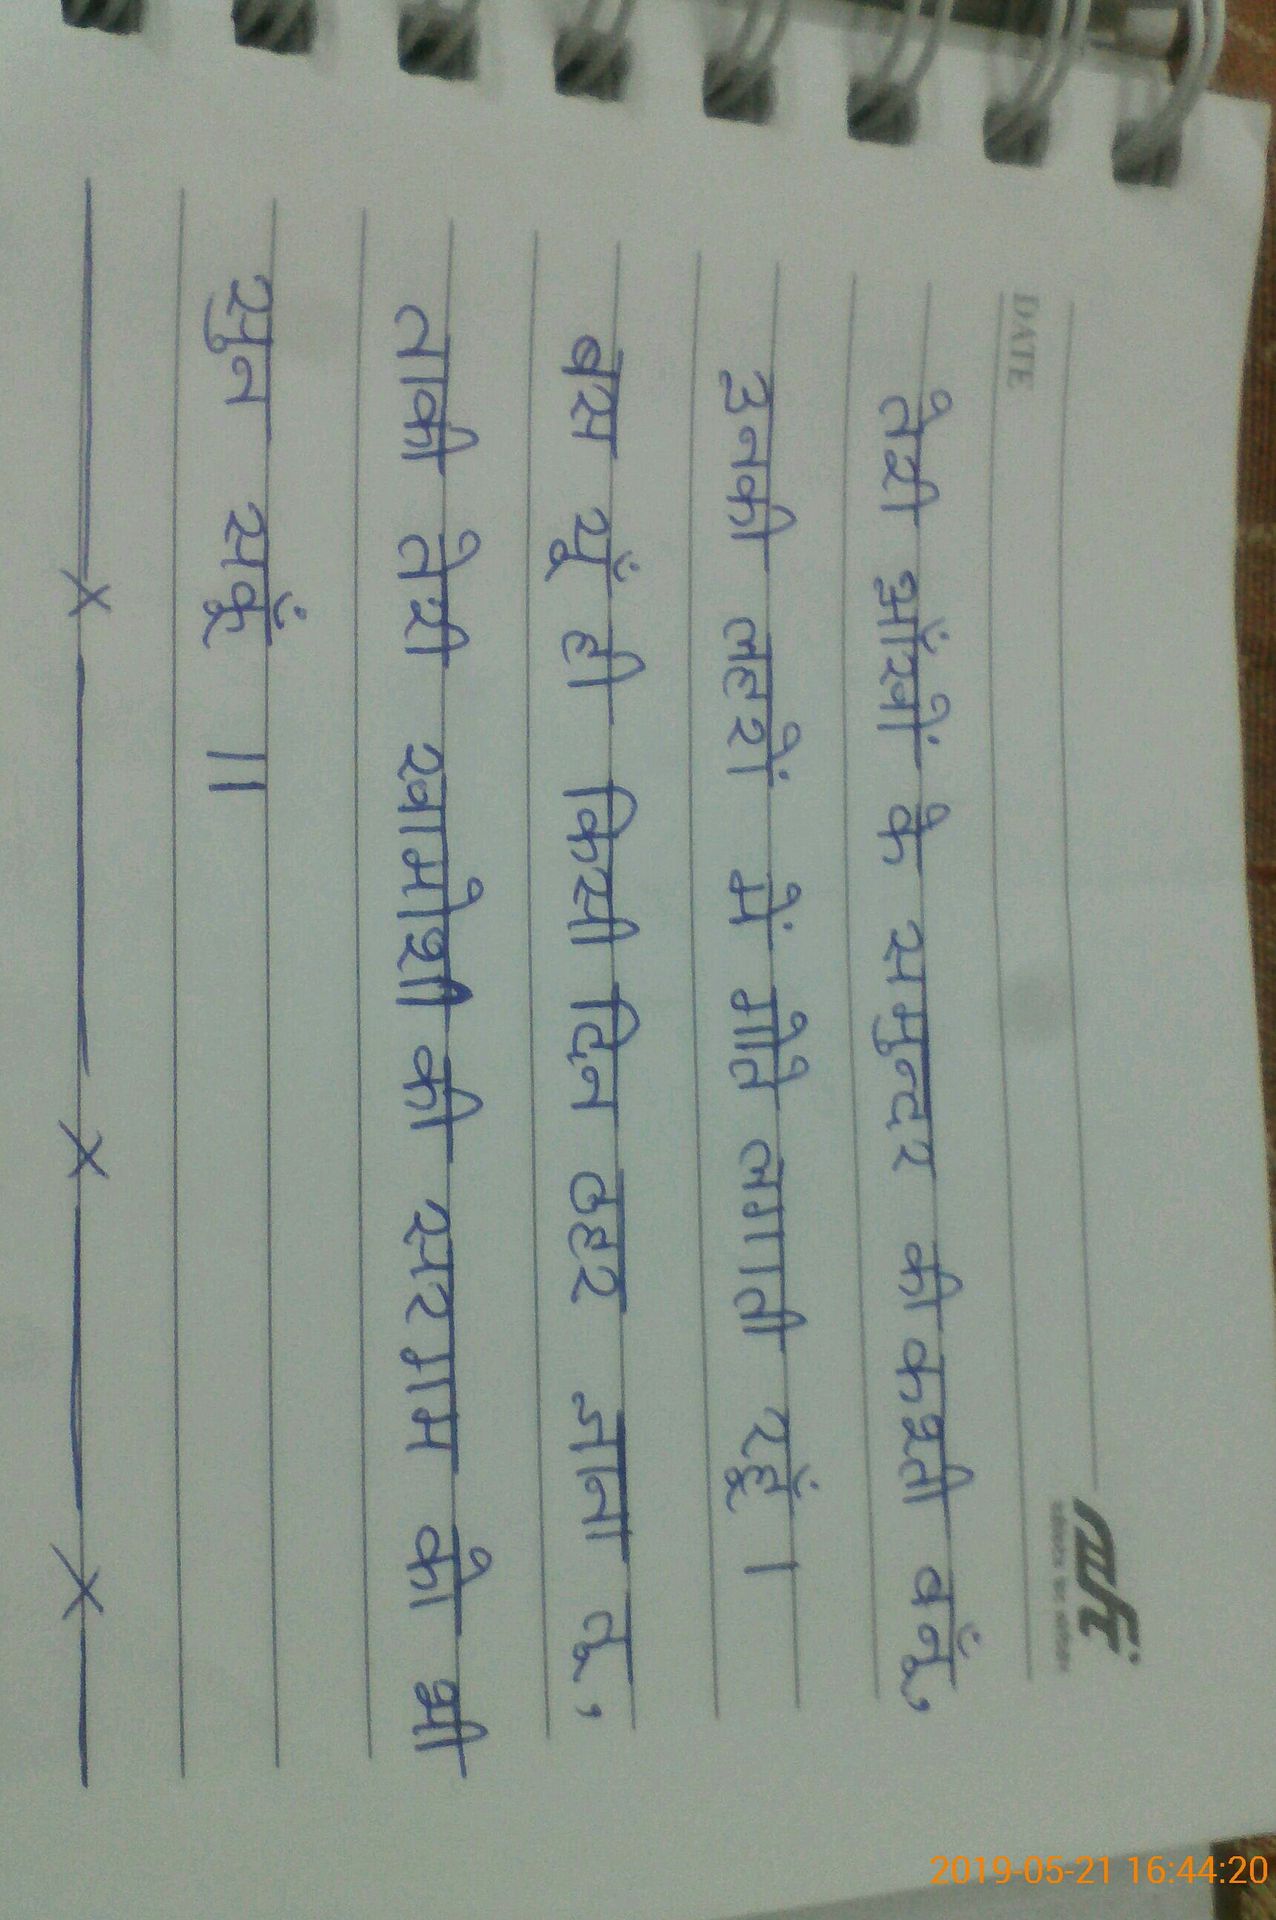 DATE
nift
तेरी आँखों के समुन्दर की कश्ती बनूँ,
उनकी लहरों में गोते लगाती रहूँ ।
बस यूँ ही किसी दिन ठहर जाना तू,
ताकी तेरी खामोशी की सरगम को भी
सुन सकूँ ॥
2019-05-21 16:44:20